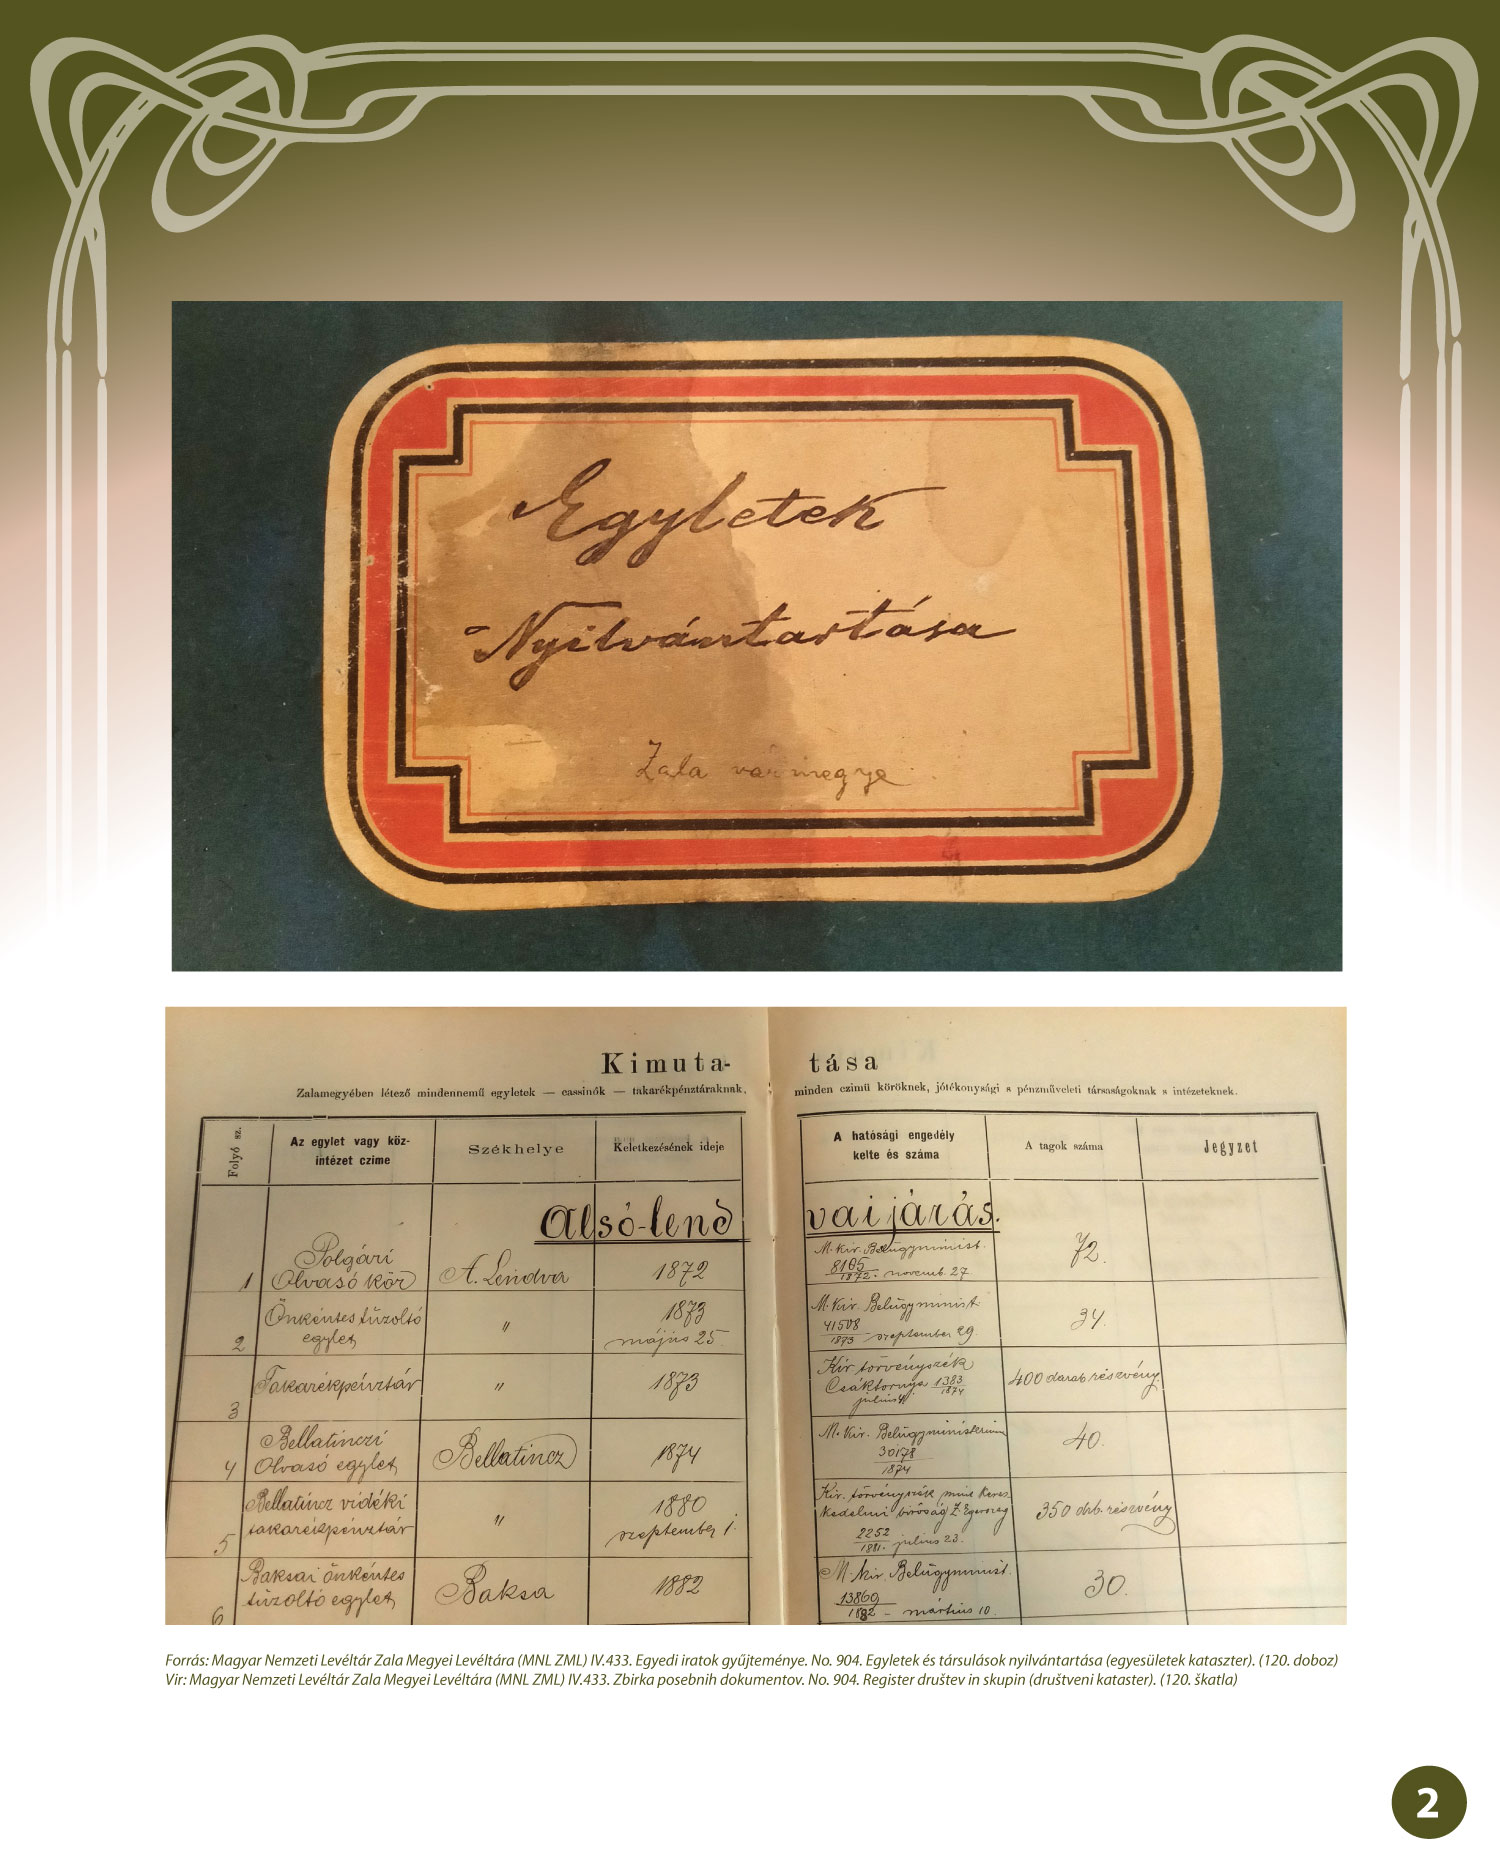 Egyletek
Nyilvántartása
Zala vármegye
Kimuta- tása
Zalamegyében létező mindennemű egyletek — cassinók — takarékpénztáraknak, minden czimü köröknek, jótékonysági s pénzműveleti társaságoknak s intézeteknek.
Folyó sz.
Az egylet vagy köz-
intézet czime
Székhelye
Keletkezésének ideje
A hatósági engedély
kelte és száma
A tagok száma
Jegyzet
Alsó-lend vai járás.
1 Polgári
Olvasó kör
A. Lendva
1872
M. kir. Belügyminist.
8165
1872. novemb. 27.
72.
2 Önkéntes tüzoltó
egylet
"
1873
május 25.
M. Kir. Belügyminist.
41508
1873 szeptember 29.
34.
3 Takarékpénztár
"
1873
Kir törvényszék
Csáktornya 1383
1874
julius 4.
400 darab részvény.
4 Bellatinczi
Olvasó egylet
Bellatincz
1874
M. Kir. Belügyministerium
30178
1874
40.
5 Bellatincz vidéki
takarékpénztár
"
1880
szeptember 1.
Kir. törvényszék mint keres
kedelmi biróság Z. Egerszeg
2252
1881. julius 23.
350 drb. részvény
6 Baksai önkéntes
tüzoltó egylet
Baksa
1882
M. kir. Belügyminist.
13869
1882 – március 10.
30.
Forrás: Magyar Nemzeti Levéltár Zala Megyei Levéltára (MNL ZML) IV.433. Egyedi iratok gyűjteménye. No. 904. Egyletek és társulások nyilvántartása (egyesületek kataszter). (120. doboz)
Vir: Magyar Nemzeti Levéltár Zala Megyei Levéltára (MNL ZML) IV.433. Zbirka posebnih dokumentov. No. 904. Register društev in skupin (društveni kataster). (120. škatla)
2